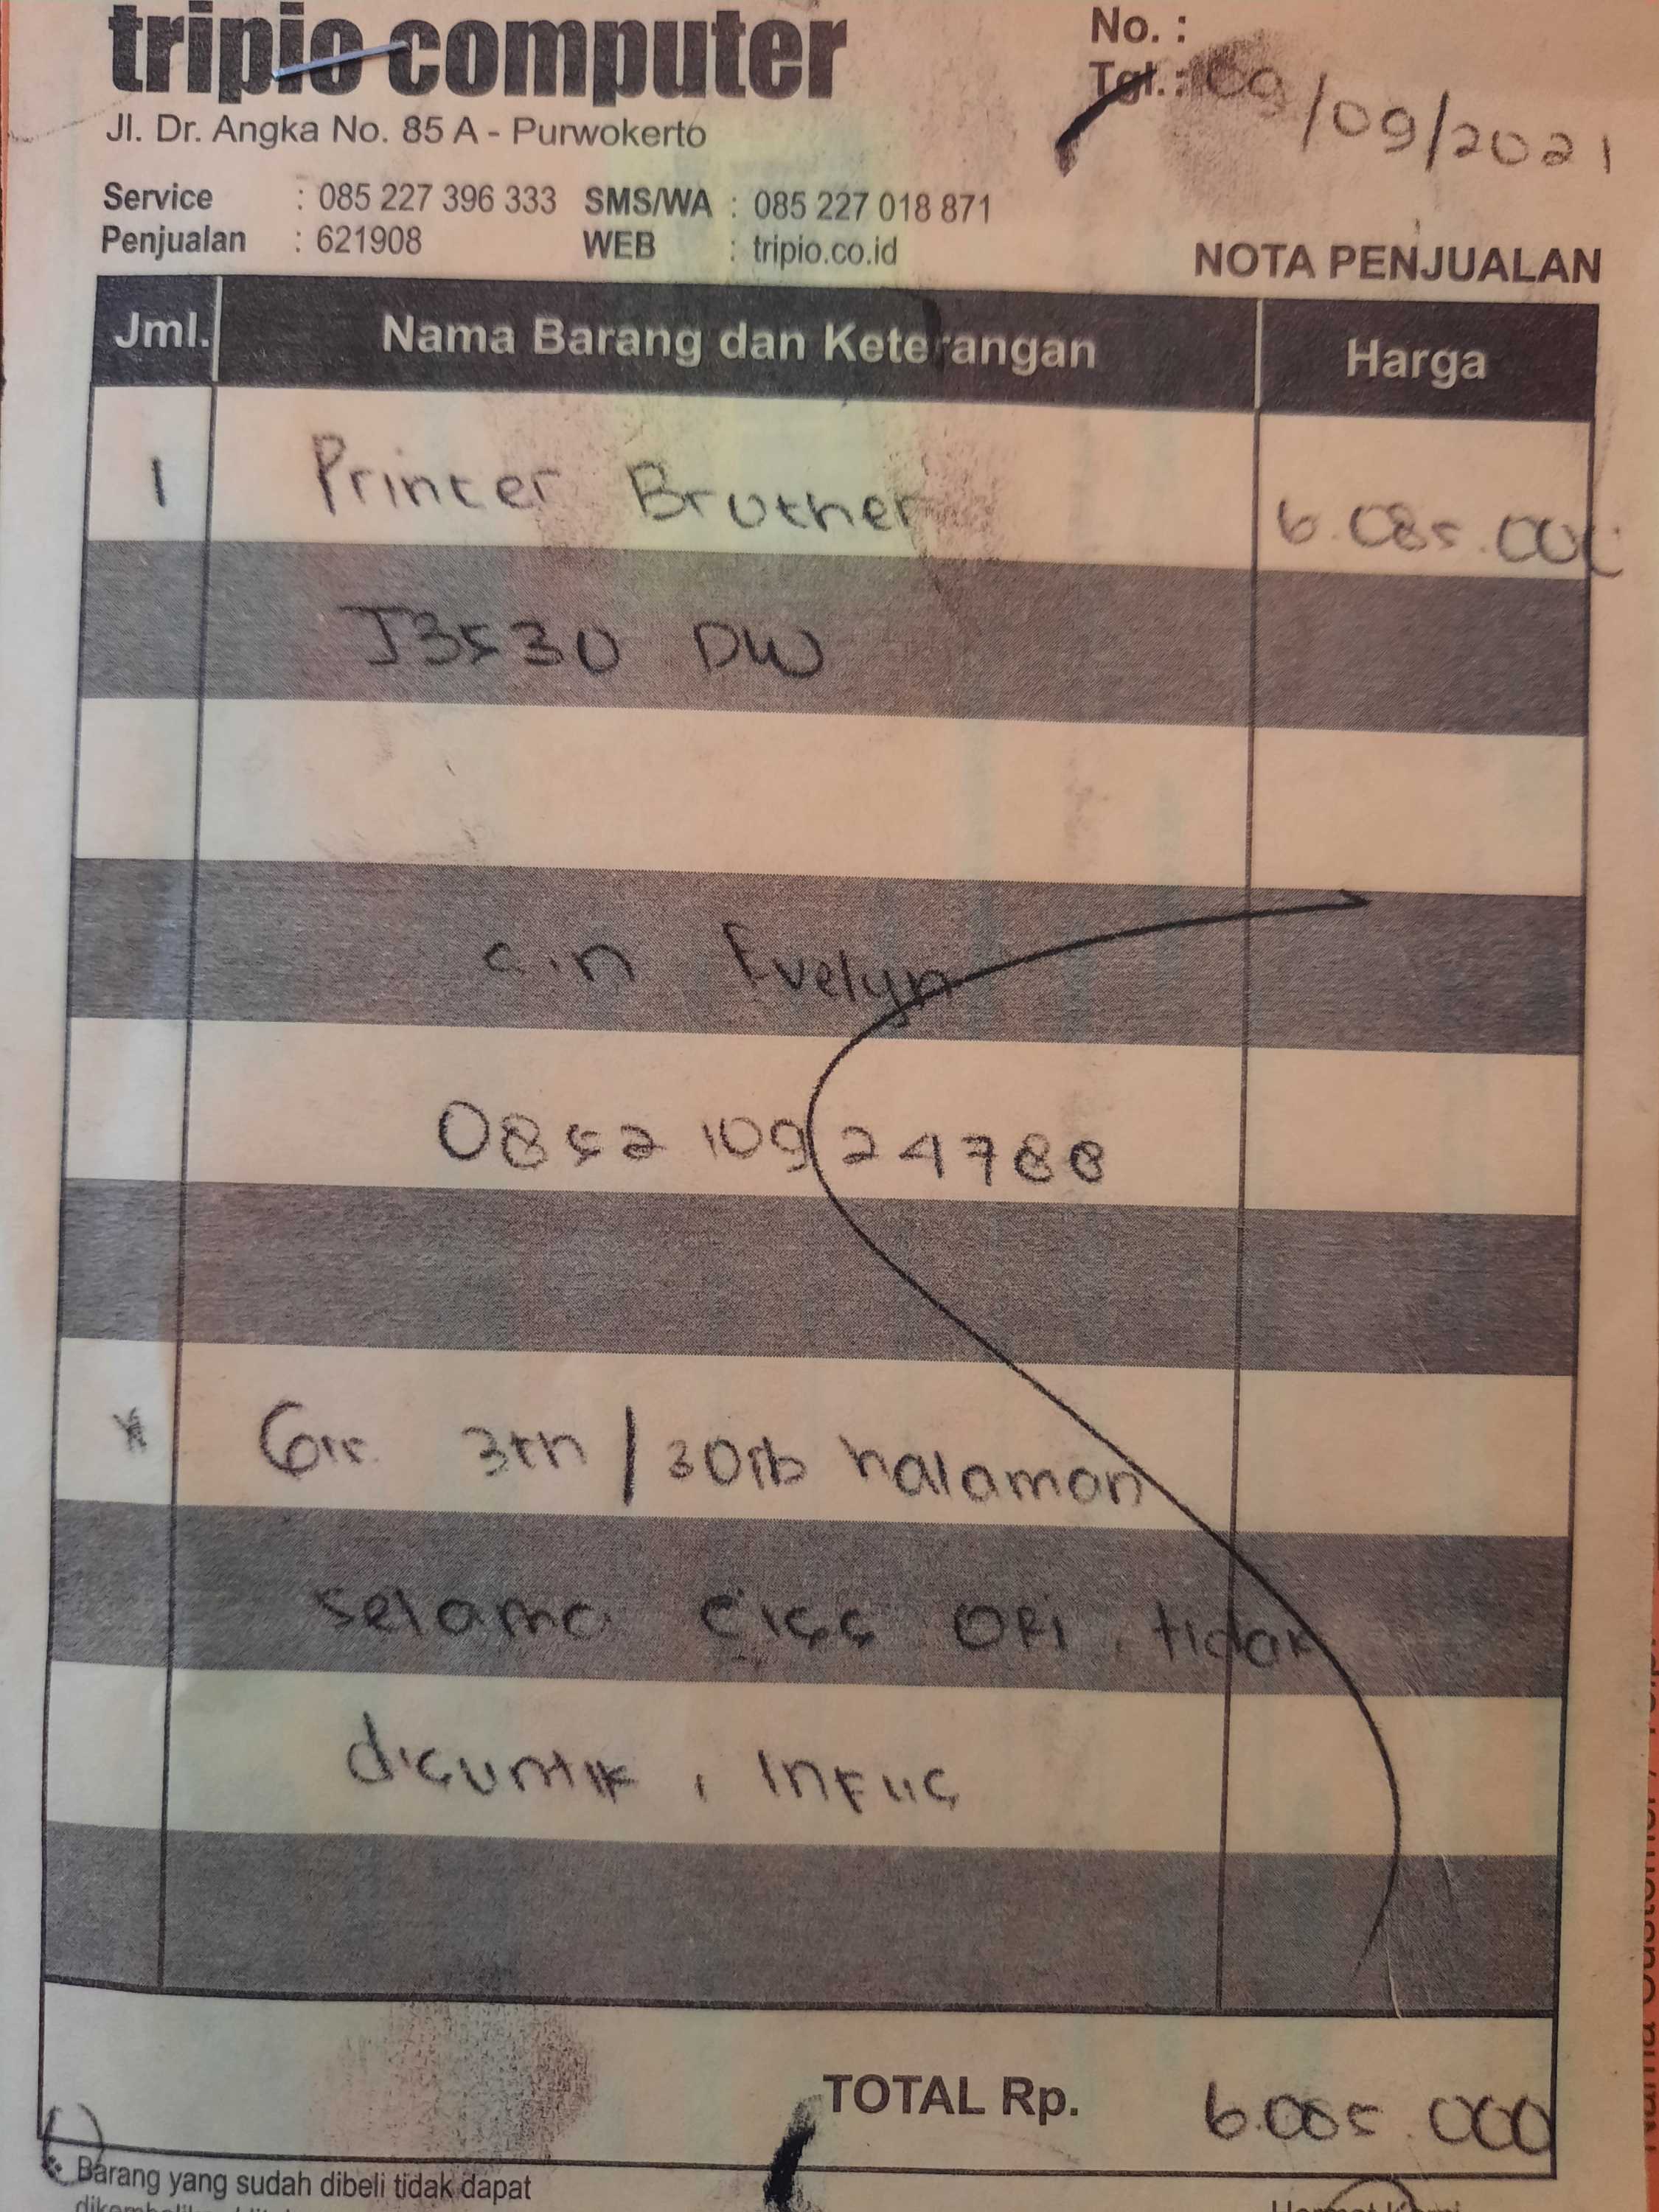 tripio computer
No. :
Jl. Dr. Angka No. 85 A - Purwokerto
Tgl. : 09/09/2021
Service : 085 227 396 333 SMS/WA : 085 227 018 871
Penjualan : 621908 WEB : tripio.co.id
NOTA PENJUALAN
Jml. Nama Barang dan Keterangan Harga
1 Printer Brother 6.085.000
J3530 DW
a.n Evelyn
0852 109 24788
* Grs. 3th / 30rb halaman
selama ciss ORI, tidak
disuntik, infus
TOTAL Rp. 6.085.000
* Barang yang sudah dibeli tidak dapat